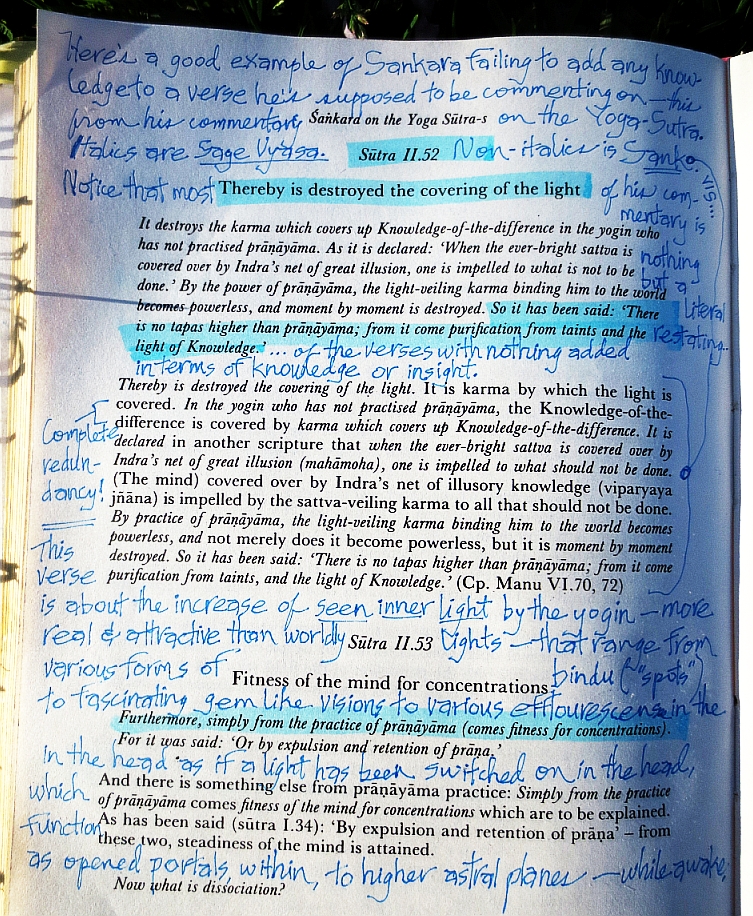 Here's a good example of Sankara failing to add any know-
ledge to a verse he's supposed to be commenting on – this
from his commentary Śaṅkara on the Yoga Sūtra-s on the Yoga-Sutra.
Italics are Sage Vyasa. Sūtra II.52 Non-italics is Sanka.
Notice that most Thereby is destroyed the covering of the light of his com-
mentary is
It destroys the karma which covers up Knowledge-of-the-difference in the yogin who
has not practised prāṇāyāma. As it is declared: 'When the ever-bright sattva is nothing
covered over by Indra's net of great illusion, one is impelled to what is not to be but a
done.' By the power of prāṇāyāma, the light-veiling karma binding him to the world literal
becomes powerless, and moment by moment is destroyed. So it has been said: 'There
is no tapas higher than prāṇāyāma; from it come purification from taints and the restating
light of Knowledge.' ... of the verses with nothing added
in terms of knowledge or insight.
Thereby is destroyed the covering of the light. It is karma by which the light is
covered. In the yogin who has not practised prāṇāyāma, the Knowledge-of-the-
Complete difference is covered by karma which covers up Knowledge-of-the-difference. It is
declared in another scripture that when the ever-bright sattva is covered over by
redun- Indra's net of great illusion (mahāmoha), one is impelled to what should not be done.
dancy! (The mind) covered over by Indra's net of illusory knowledge (viparyaya
jñāna) is impelled by the sattva-veiling karma to all that should not be done.
By practice of prāṇāyāma, the light-veiling karma binding him to the world becomes
This powerless, and not merely does it become powerless, but it is moment by moment
destroyed. So it has been said: 'There is no tapas higher than prāṇāyāma; from it come
verse purification from taints, and the light of Knowledge.' (Cp. Manu VI.70, 72)
is about the increase of seen inner light by the yogin – more
real & attractive than worldly Sūtra II.53 lights – that range from
various forms of Fitness of the mind for concentrations. bindu ("spots")
to fascinating gem like visions to various efflourescens in the
Furthermore, simply from the practice of prāṇāyāma (comes fitness for concentrations).
For it was said: 'Or by expulsion and retention of prāna.'
in the head as if a light has been switched on in the head,
which And there is something else from prāṇāyāma practice: Simply from the practice
of prāṇāyāma comes fitness of the mind for concentrations which are to be explained.
function As has been said (sūtra I.34): 'By expulsion and retention of prāṇa' – from
these two, steadiness of the mind is attained.
as opened portals, within, to higher astral planes – while awake,
Now what is dissociation?